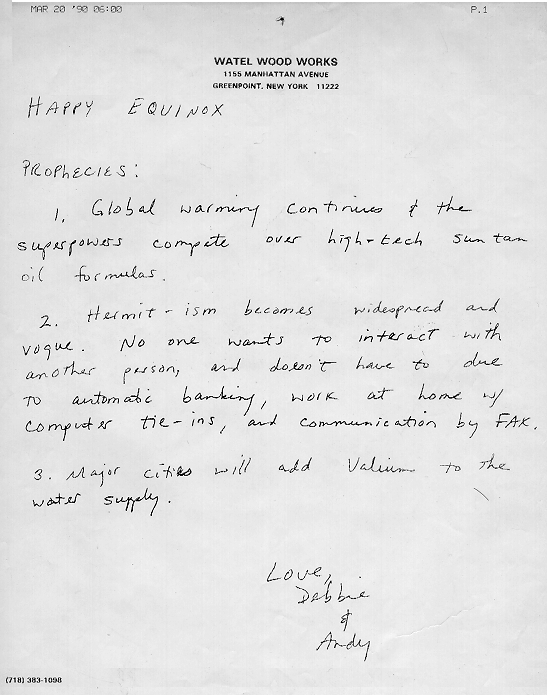 MAR 20 '90 06:00 P.1
WATEL WOOD WORKS
1155 MANHATTAN AVENUE
GREENPOINT, NEW YORK 11222
HAPPY EQUINOX
PROPHECIES:
1. Global warming continues & the
superpowers compete over high-tech sun tan
oil formulas.
2. Hermit-ism becomes widespread and
vogue. No one wants to interact with
another person, and doesn't have to due
to automatic banking, work at home w/
computer tie-ins, and communication by FAX.
3. Major cities will add Valium to the
water supply.
Love,
Debbie
&
Andy
(718) 383-1098